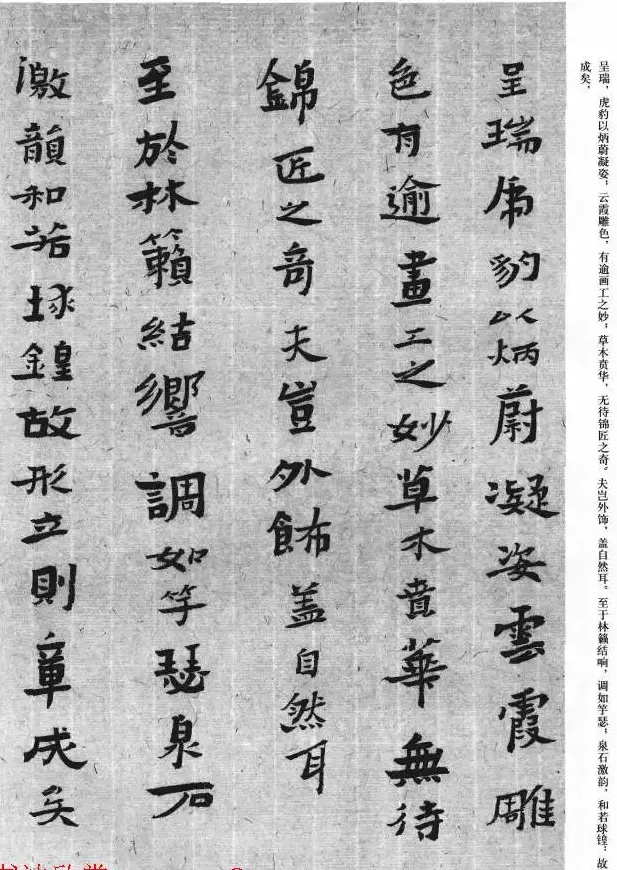 呈瑞，虎豹以炳蔚凝姿；云霞雕色，有逾画工之妙；草木贲华，无待锦匠之奇。夫岂外饰，盖自然耳。至于林籁结响，调如竽瑟；泉石激韵，和若球锽：故
成矣，
呈瑞虎豹以炳蔚凝姿雲霞雕
色有逾畫工之妙草木賁華無待
錦匠之奇夫豈外飾盖自然耳
至於林籟結響調如竽瑟泉石
激韻和若球鍠故形立則章成矣